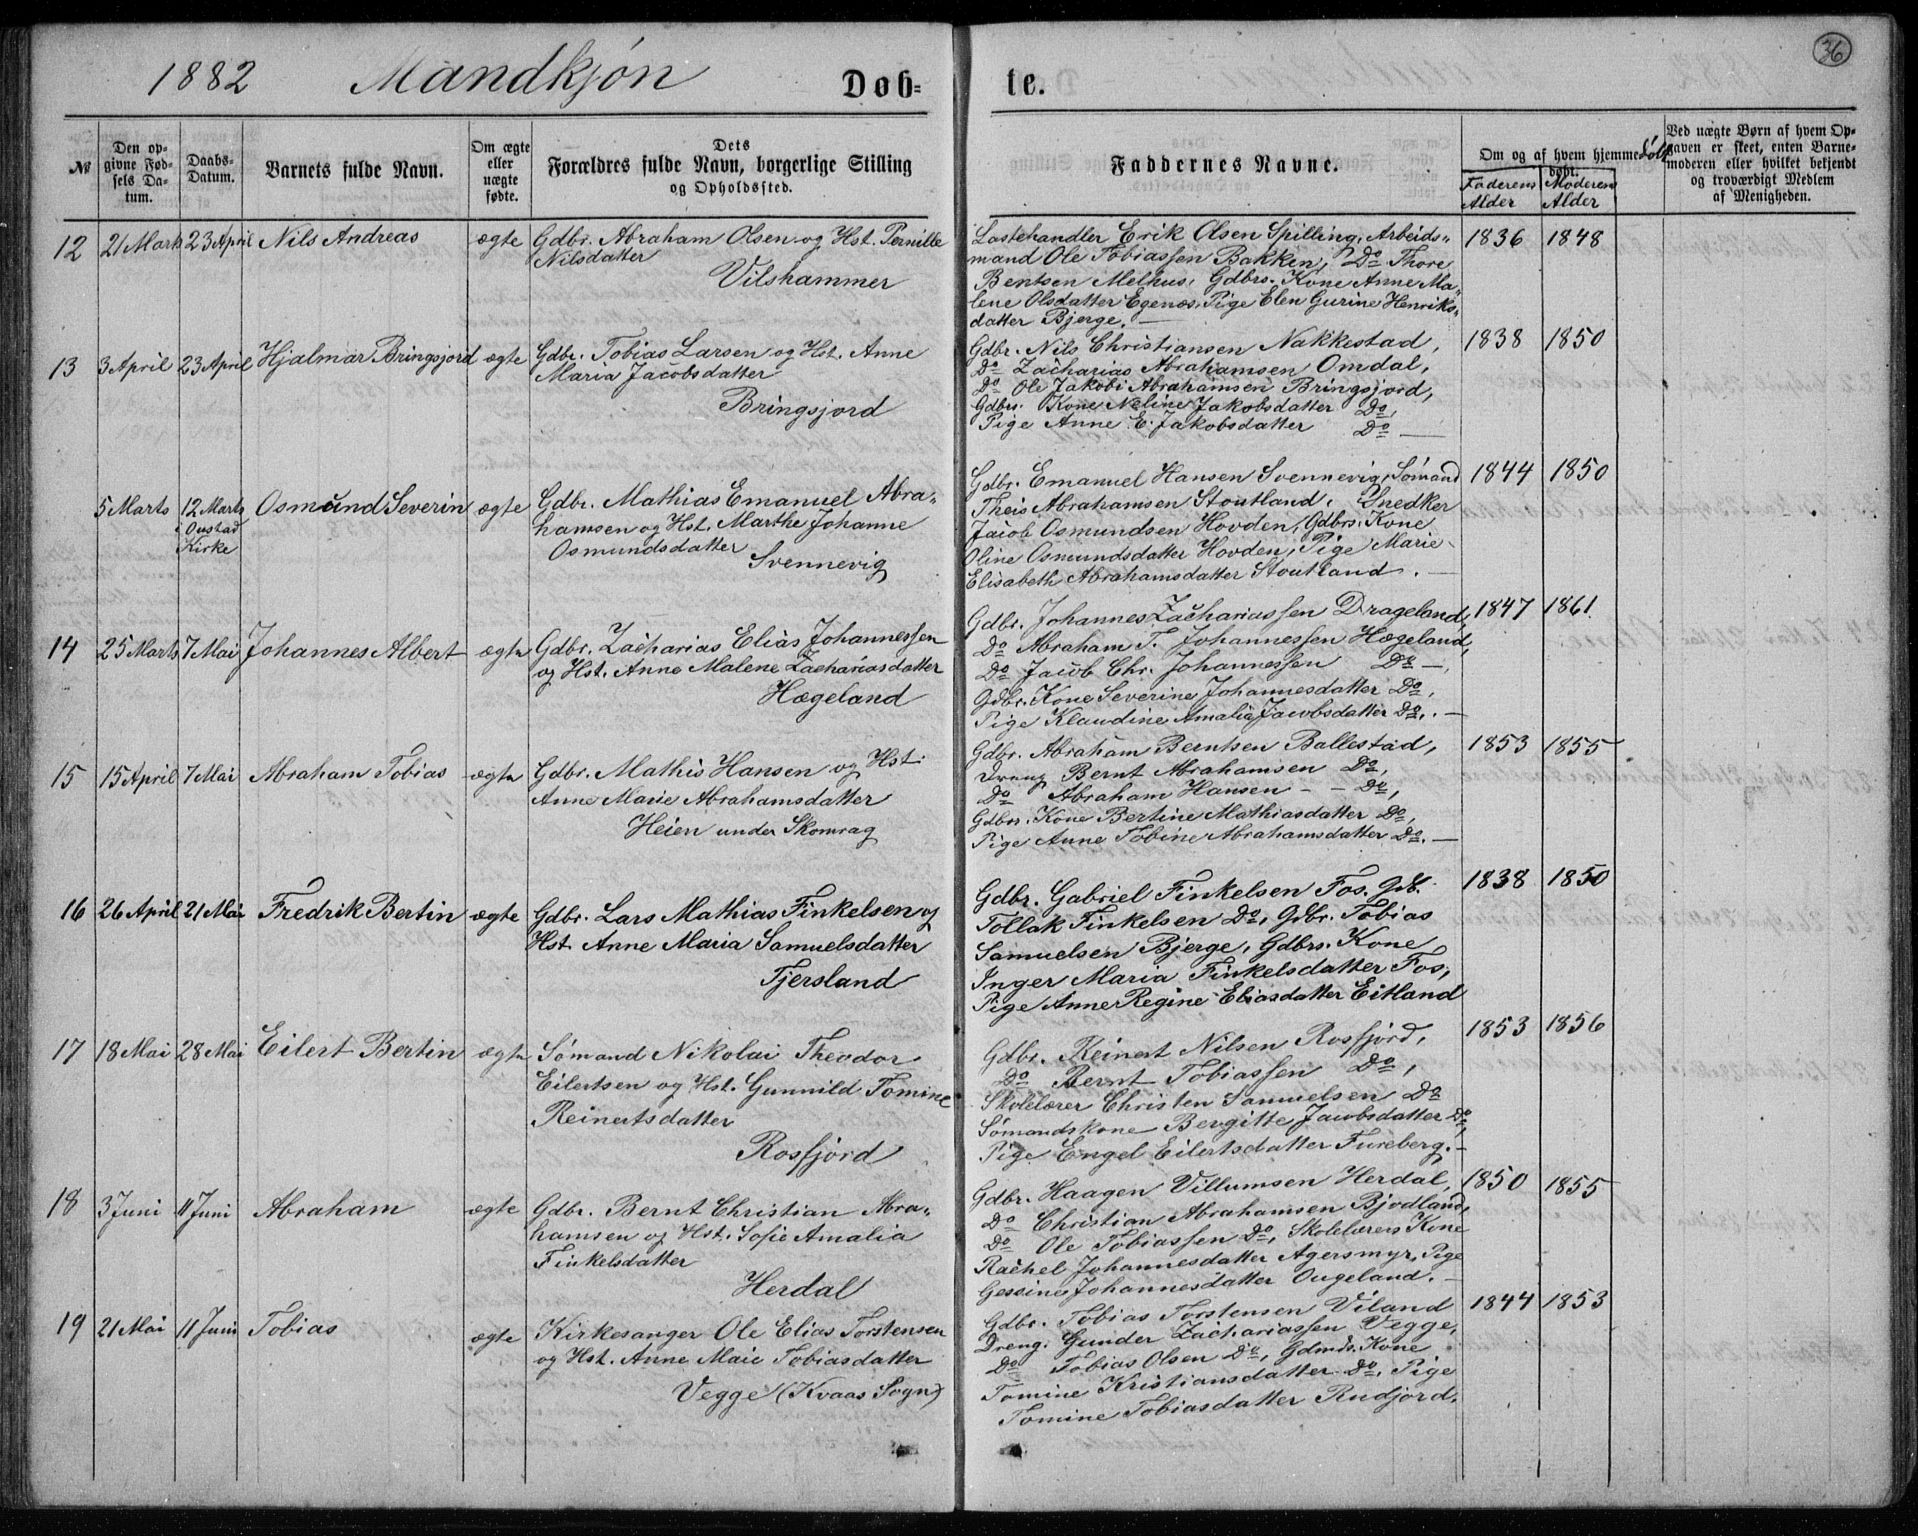 36
1882 Mandkjøn Døb=
te.
№
Den op-
givne Fød-
sels Da-
tum.
Daabs-
Datum.
Barnets fulde Navn.
Om ægte
eller
uægte
fødte.
Dets
Forældres fulde Navn, borgerlige Stilling
og Opholdssted.
Faddernes Navne.
Om og af hvem hjemme
døbt.
Faderens
Alder
Moderens
Alder
Ved uægte Børn af hvem Op-
gaven er skeet, enten Barne-
moderen eller hvilket bekjendt
og troværdigt Medlem
af Menigheden.
12 21 Marts 23 April Nils Andreas ægte
Gdbr. Abraham Olsen og Hst. Pernille
Nilsdatter
Vilshammer
Lastehandler Erik Olsen Spilling, Arbeids-
mand Ole Tobiassen Bakken, Do Thore
Bentsen Melhus, Gdbrs. Kone Anne Ma-
lene Olsdatter Egenæs, Pige Elen Gurine Henriks-
datter Bjerge. —
1836 1848
13 3 April 23 April Hjalmar Bringsjord ægte
Gdbr. Tobias Larsen og Hst. Anne
Maria Jacobsdatter
Bringsjord
Gdbr. Nils Christiansen Nakkestad,
Do Zacharias Abrahamsen Omdal,
Do Ole Jakob Abrahamsen Bringsjord,
Gdbrs. Kone Neline Jakobsdatter Do,
Pige Anne E. Jakobsdatter Do —
1838 1850
5 Marts 12 Marts
i Oustad
Kirke
Osmund Severin ægte
Gdbr. Mathias Emanuel Abra-
hamsen og Hst. Marthe Johanne
Osmundsdatter
Svennevig
Gdbr. Emanuel Hansen Svennevig, Sømand
Theis Abrahamsen Stoutland, Snedker
Jacob Osmundsen Hovden, Gdbrs. Kone
Oline Osmundsdatter Hovden, Pige Marie
Elisabeth Abrahamsdatter Stoutland. —
1844 1850
14 25 Marts 7 Mai Johannes Albert ægte
Gdbr. Zacharias Elias Johannessen
og Hst. Anne Malene Zachariasdatter
Hægeland
Gdbr. Johannes Zachariassen Drageland,
Do Abraham T. Johannessen Hægeland,
Do Jacob Chr. Johannessen Do —,
Gdbr. Kone Severine Johannesdatter Do,
Pige Klaudine Amalia Jacobsdatter Do. —
1847 1861.
15 15 April 7 Mai Abraham Tobias ægte
Gdbr. Mathis Hansen og Hst.
Anne Marie Abrahamsdatter
Heien under Skomrag
Gdbr. Abraham Berntsen Ballestad,
Dreng Bernt Abrahamsen Do,
Do Abraham Hansen - - Do,
Gdbrs. Kone Bertine Mathiasdatter Do,
Pige Anne Tobine Abrahamsdatter Do. —
1853 1855
16 26 April 21 Mai Fredrik Bertin ægte
Gdbr. Lars Mathias Finkelsen og
Hst. Anne Maria Samuelsdatter
Tjersland
Gdbr. Gabriel Finkelsen Fos.
Tollak Finkelsen Do, Gdbr. Tobias
Samuelsen Bjerge, Gdbrs. Kone
Inger Maria Finkelsdatter Fos,
Pige Anne Regine Eliasdatter Eitland
1838 1850
17 18 Mai 28 Mai Eilert Bertin ægte
Sømand Nikolai Theodor
Eilertsen og Hst. Gunnild Tomine
Reinertsdatter
Rosfjord
Gdbr. Reinert Nilsen Rosfjord,
Do Bernt Tobiassen Do,
Skolelærer Christen Samuelsen Do
Sømandskone Bergitte Jacobsdatter Do,
Pige Engel Eilertsdatter Fureberg. —
1853 1856
18 3 Juni 11 Juni Abraham ægte
Gdbr. Bernt Christian Abra-
hamsen og Hst. Sofie Amalia
Finkelsdatter
Herdal
Gdbr. Haagen Villumsen Herdal,
Do Christian Abrahamsen Bjodland,
Do Ole Tobiassen Do, Skolelærers Kone
Rachel Johannesdatter Agersmyr, Pige
Gessine Johannesdatter Ougeland. —
1850 1855
19 21 Mai 11 Juni Tobias ægte
Kirkesanger Ole Elias Torstensen
og Hst. Anne Maie Tobiasdatter
Vegge (Kvaas Sogn)
Gdbr. Tobias Torstensen Viland
Dreng. Gunder Zachariassen Vegge,
Do Tobias Olsen Do, Gdmds. Kone
Tomine Kristiansdatter Do, Pige
Tomine Tobiasdatter Rudjord.
1844 1853